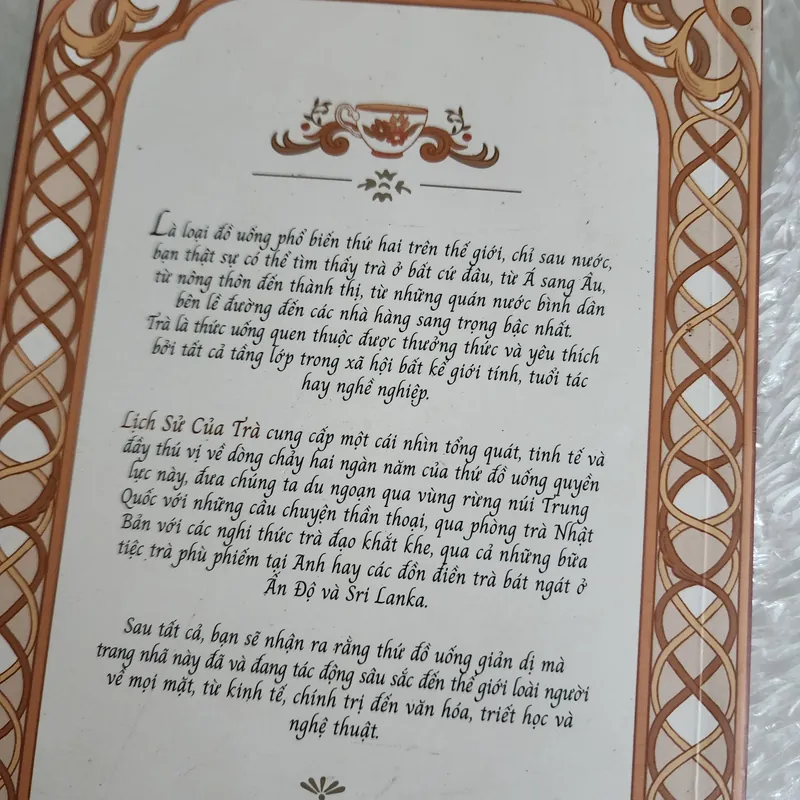 Là loại đồ uống phổ biến thứ hai trên thế giới, chỉ sau nước,
bạn thật sự có thể tìm thấy trà ở bất cứ đâu, từ Á sang Âu,
từ nông thôn đến thành thị, từ những quán nước bình dân
bên lề đường đến các nhà hàng sang trọng bậc nhất.
Trà là thức uống quen thuộc được thưởng thức và yêu thích
bởi tất cả tầng lớp trong xã hội bất kể giới tính, tuổi tác
hay nghề nghiệp.
Lịch Sử Của Trà cung cấp một cái nhìn tổng quát, tinh tế và
đầy thú vị về dòng chảy hai ngàn năm của thứ đồ uống quyền
lực này, đưa chúng ta du ngoạn qua vùng rừng núi Trung
Quốc với những câu chuyện thần thoại, qua phòng trà Nhật
Bản với các nghi thức trà đạo khắt khe, qua cả những bữa
tiệc trà phù phiếm tại Anh hay các đồn điền trà bát ngát ở
Ấn Độ và Sri Lanka.
Sau tất cả, bạn sẽ nhận ra rằng thứ đồ uống giản dị mà
trang nhã này đã và đang tác động sâu sắc đến thế giới loài người
về mọi mặt, từ kinh tế, chính trị đến văn hóa, triết học và
nghệ thuật.